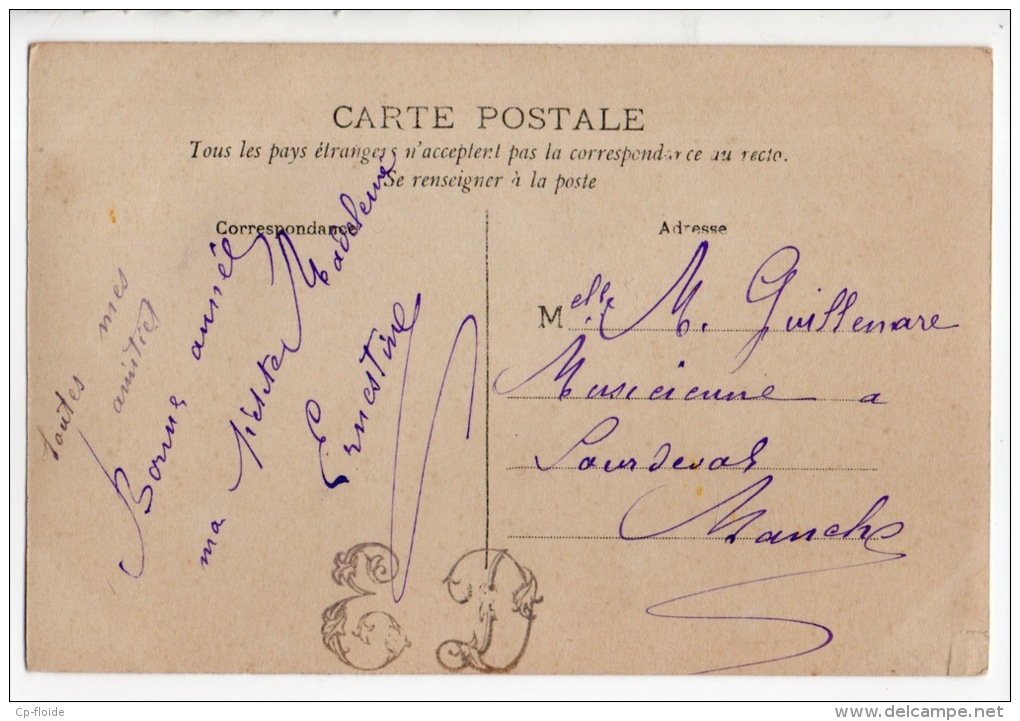 CARTE POSTALE
Tous les pays étrangers n'acceptent pas la correspondance au recto.
Se renseigner à la poste
Correspondance
Adresse
toutes mes
amitiés
Bonne année
ma petite Madeleine
Ernestine
Melle M. Guillemare
Musicienne a
Sourdeval
Manche
ED
Cp-floide
www.delcampe.net